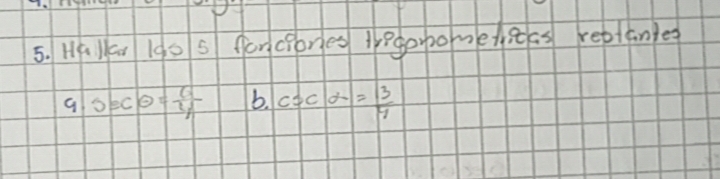 5. Hallar las 5 funciones trigonometricas restantes
a. sec θ = 6/4 b. csc α = 13/4